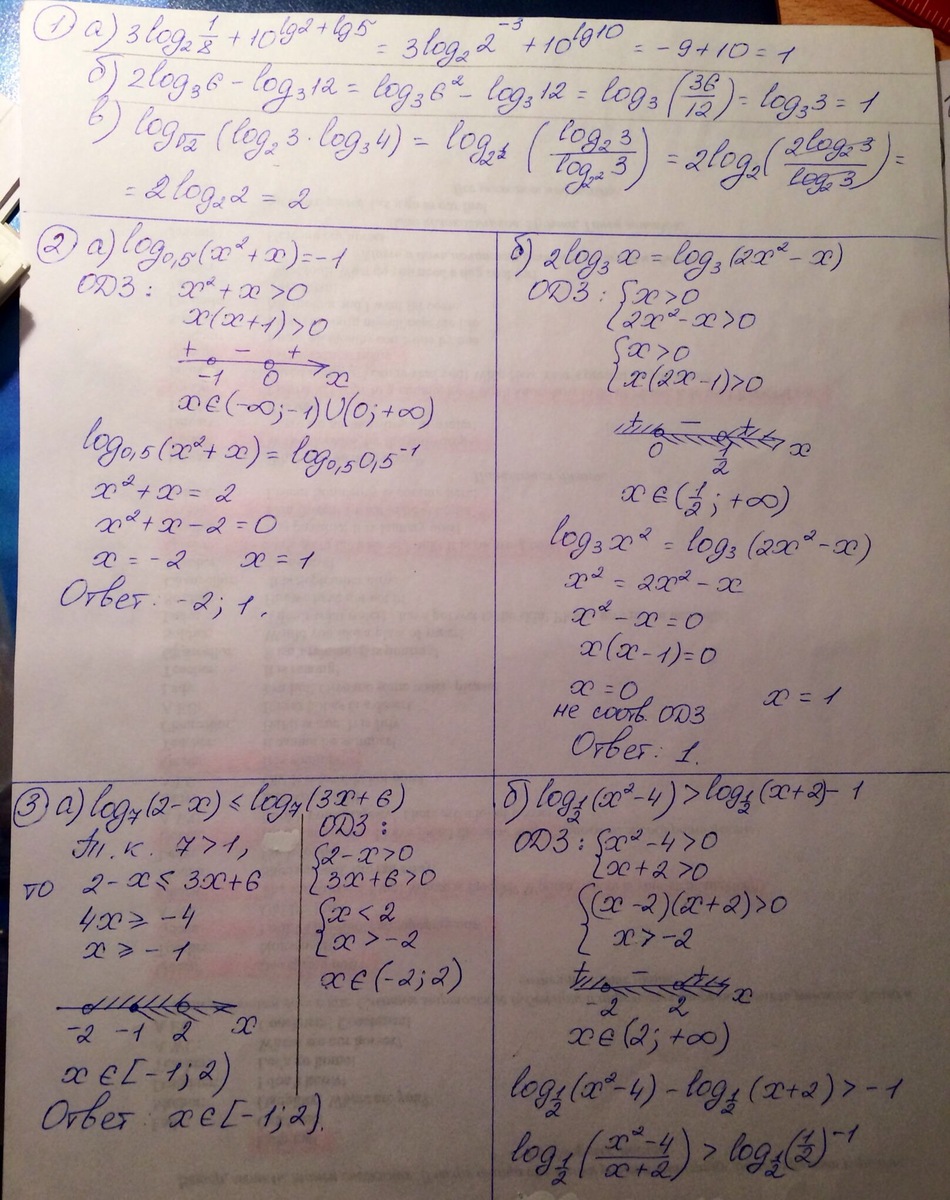 1) а) 3log₂ 1/8 + 10^(lg2+lg5) = 3log₂2⁻³ + 10^(lg10) = -9+10 = 1
б) 2log₃6 - log₃12 = log₃6² - log₃12 = log₃(36/12) = log₃3 = 1
в) log_√2 (log₂3·log₃4) = log_(2^(1/2)) (log₂3/log_(2²)3) = 2log₂(2log₂3/log₂3) =
= 2log₂2 = 2
2) а) log₀,₅(x²+x) = -1
ОДЗ: x²+x>0
x(x+1)>0
+ - +
-1 0 x
x∈(-∞;-1)∪(0;+∞)
log₀,₅(x²+x) = log₀,₅0,5⁻¹
x²+x = 2
x²+x-2=0
x=-2 x=1
Ответ: -2; 1.
б) 2log₃x = log₃(2x²-x)
ОДЗ: {x>0
{2x²-x>0
{x>0
{x(2x-1)>0
+ - +
0 1/2 x
x∈(1/2; +∞)
log₃x² = log₃(2x²-x)
x² = 2x²-x
x²-x=0
x(x-1)=0
x=0 x=1
не соотв. ОДЗ
Ответ: 1.
3) а) log₇(2-x) ≤ log₇(3x+6)
Т.к. 7>1,
то 2-x ≤ 3x+6
4x ≥ -4
x ≥ -1
ОДЗ:
{2-x>0
{3x+6>0
{x<2
{x>-2
x∈(-2;2)
-2 -1 2 x
x∈[-1;2)
Ответ: x∈[-1;2).
б) log_(1/2)(x²-4) > log_(1/2)(x+2) - 1
ОДЗ: {x²-4>0
{x+2>0
{(x-2)(x+2)>0
{x>-2
+ - +
-2 2 x
x∈(2;+∞)
log_(1/2)(x²-4) - log_(1/2)(x+2) > -1
log_(1/2)((x²-4)/(x+2)) > log_(1/2)(1/2)⁻¹